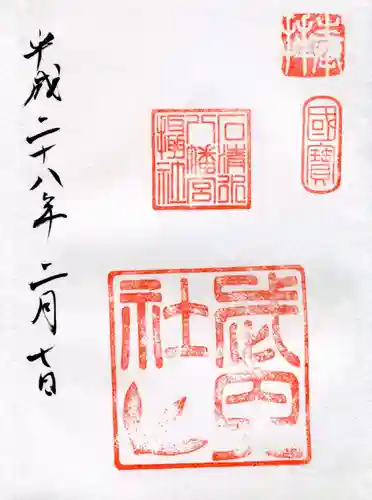 奉拝
國寶
石清水
八幡宮
攝社
武内
平成二十八年二月七日